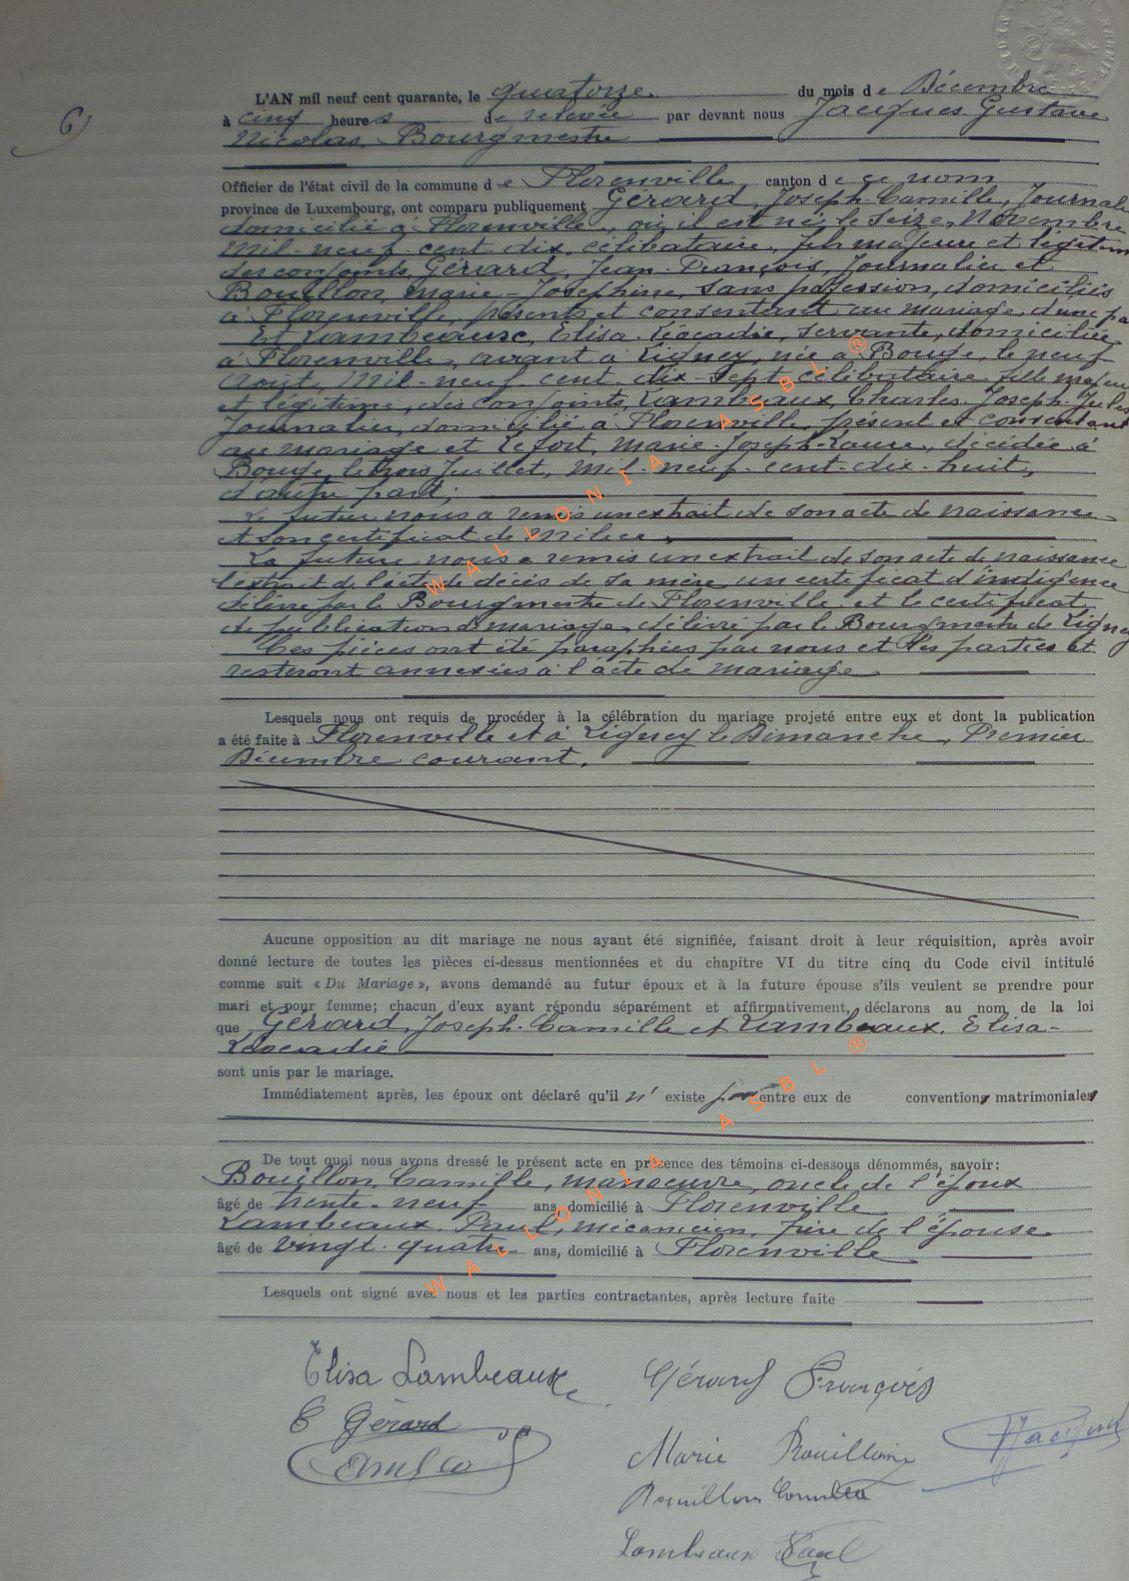 6)
L'AN mil neuf cent quarante, le quatorze du mois de Décembre
à cinq heures de relevée par devant nous Jacques Gustave
Nicolas, Bourgmestre
Officier de l'état civil de la commune de Florenville, canton de ce nom
province de Luxembourg, ont comparu publiquement Gérard, Joseph-Camille, Journalier
domicilié à Florenville, où il est né, le Seize, Novembre
Mil-neuf-cent-dix, célibataire, fils majeur et légitime
des conjoints, Gérard, Jean-François, Journalier et
Bouillon, Marie-Josephine, Sans profession, domiciliés
à Florenville, présents et consentant au mariage, d'une part
Et Lambeaux, Elisa-Léocadie, servante, domiciliée
à Florenville, avant à Ligney, née à Bouge, le neuf
Août, Mil-neuf-cent-dix-sept célibataire fille majeure
et légitime, des conjoints, Lambeaux, Charles-Joseph-Jules
Journalier, domicilié à Florenville, présent et consentant
au mariage et Lefort, Marie-Joseph-Laure, décédée à
Bouge, le trois Juillet, Mil-neuf-cent-dix-huit,
d'autre part;
Le futur nous a remis un extrait de son acte de naissance
et son certificat de milice,
La future nous a remis un extrait de son acte de naissance
l'extrait de l'acte de décès de sa mère, un certificat d'indigence
délivré par le Bourgmestre de Florenville et le certificat
de publication de mariage, délivré par le Bourgmestre de Ligney
Ces pièces ont été paraphées par nous et les parties et
resteront annexées à l'acte de mariage
Lesquels nous ont requis de procéder à la célébration du mariage projeté entre eux et dont la publication
a été faite à Florenville et à Ligney le Dimanche, Premier
Décembre courant.
Aucune opposition au dit mariage ne nous ayant été signifiée, faisant droit à leur réquisition, après avoir
donné lecture de toutes les pièces ci-dessus mentionnées et du chapitre VI du titre cinq du Code civil intitulé
comme suit « Du Mariage », avons demandé au futur époux et à la future épouse s'ils veulent se prendre pour
mari et pour femme; chacun d'eux ayant répondu séparément et affirmativement, déclarons au nom de la loi
que Gérard, Joseph-Camille et Lambeaux, Elisa-
Léocadie
sont unis par le mariage.
Immédiatement après, les époux ont déclaré qu'il n' existe pas entre eux de conventions matrimoniales
De tout quoi nous avons dressé le présent acte en présence des témoins ci-dessous dénommés, savoir:
Bouillon, Camille, manoeuvre, oncle de l'époux
âgé de trente-neuf ans, domicilié à Florenville
Lambeaux, Paul, mécanicien, frère de l'épouse
âgé de vingt-quatre ans, domicilié à Florenville
Lesquels ont signé avec nous et les parties contractantes, après lecture faite
Elisa Lambeaux Gérard François
C Gérard
Marie Bouillon
Bouillon Camille
Lambeaux Paul
WALLONIA ASBL ®
WALLONIA ASBL ®